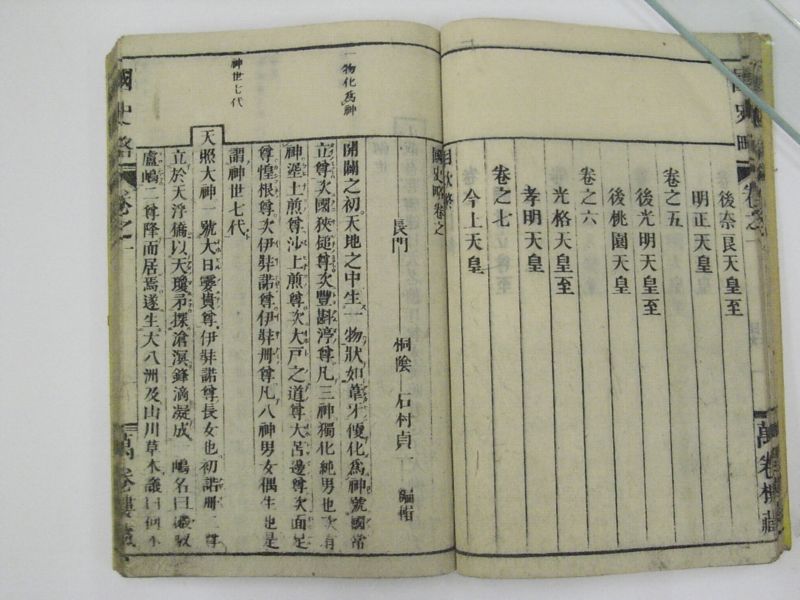 後奈良天皇至
明正天皇
卷之五
後光明天皇至
後桃園天皇
卷之六
光格天皇至
孝明天皇
卷之七
今上天皇
目次終
萬卷樓藏
國史略卷之
長門 桐陰 石村貞一 編輯
一物化爲神
開闢之初天地之中生一物狀如葦牙便化爲神號國常
立尊次國狹槌尊次豐斟渟尊凡三神獨化純男也次有
神埿土煎尊沙土煎尊次大戸之道尊大苫邊尊次面足
尊惶根尊次伊弉諾尊伊弉冊尊凡八神男女偶生也是
神世七代
謂神世七代
天照大神一號大日孁貴尊伊弉諾尊長女也初諾冊二尊
立於天浮橋以天瓊矛探滄溟鋒滴凝成一嶋名曰磤馭
盧嶋二尊降而居焉遂生大八洲及山川草木
國史略 卷之一
萬卷樓藏